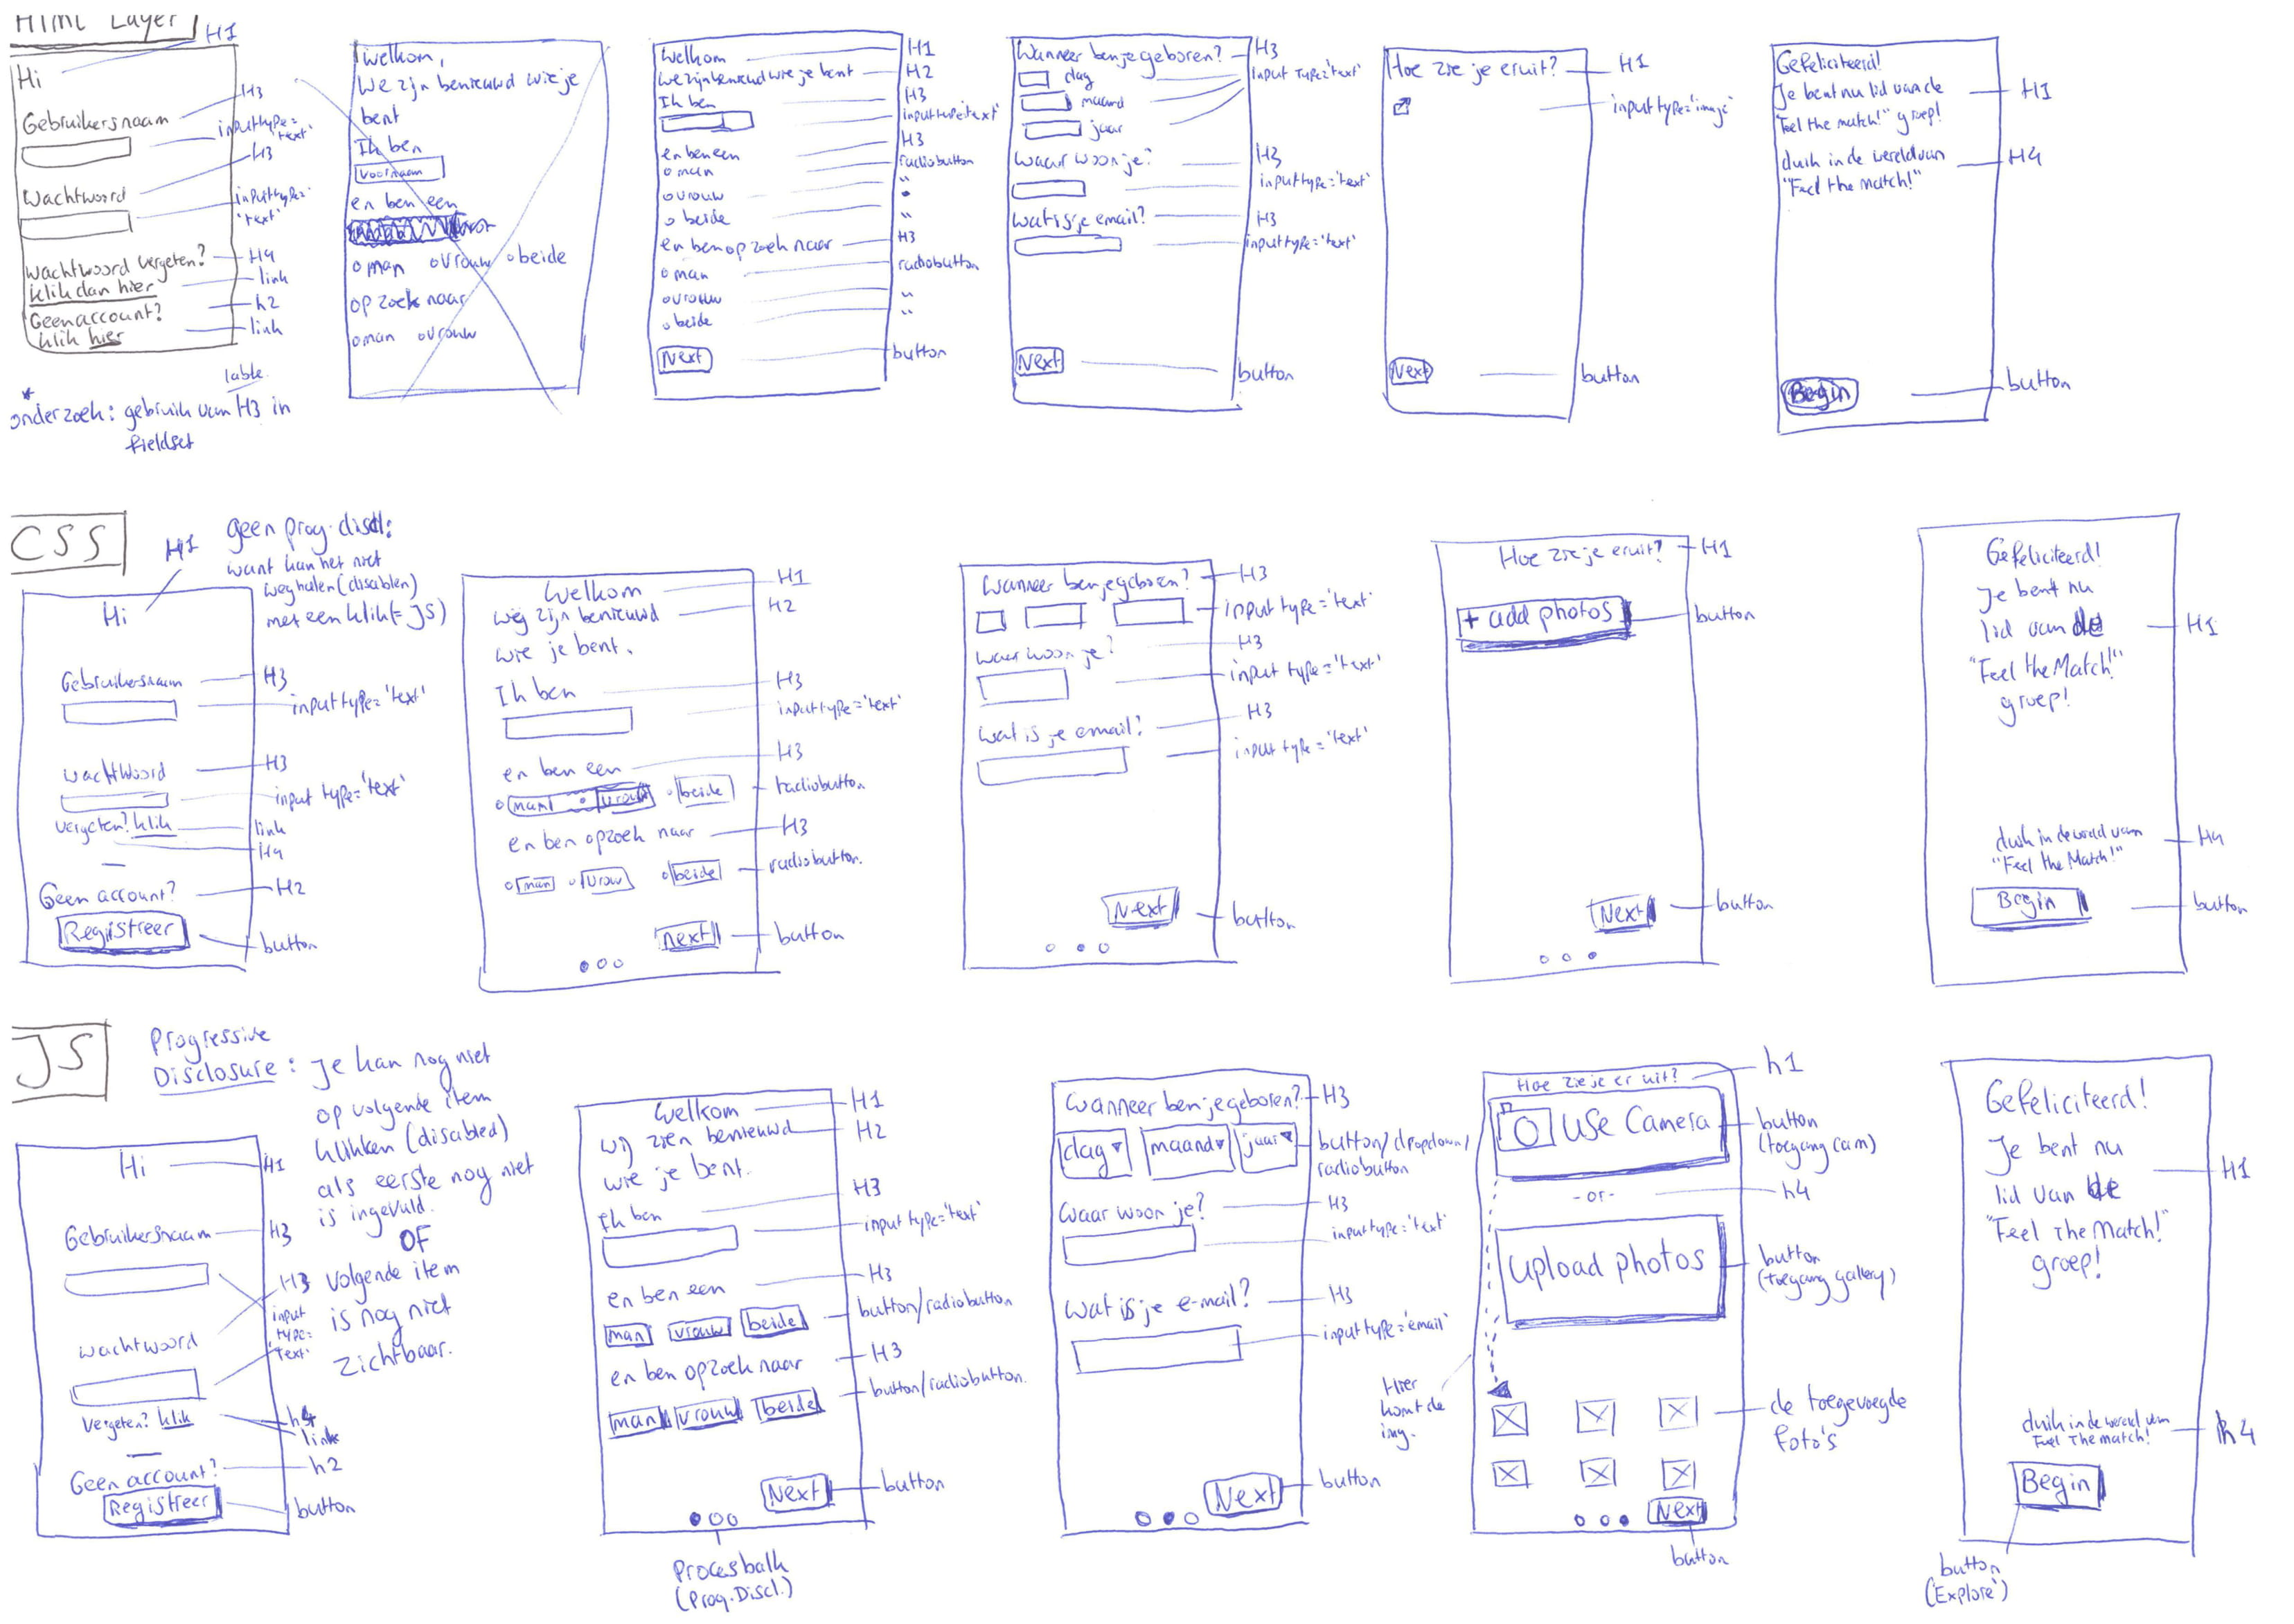 HTML Layer
H1
Hi
H3
Gebruikersnaam
input type=
'text'
H3
Wachtwoord
input type=
'text'
Wachtwoord vergeten?
H4
klik dan hier
link
h2
Geen account?
klik hier
link
lable
* onderzoek: gebruik van H3 in
fieldset
welkom,
We zijn benieuwd wie je
bent
Ik ben
voornaam
en ben een
o man o vrouw o beide
op zoek naar
o man o vrouw
Welkom
H1
We zijn benieuwd wie je bent
H2
Ik ben
H3
input type='text'
en ben een
H3
o man
radiobutton
o vrouw
"
o beide
"
en ben op zoek naar
H3
o man
radiobutton
o vrouw
"
o beide
"
Next
button
Wanneer ben je geboren?
H3
dag
input type='text'
maand
jaar
waar woon je?
H3
input type='text'
wat is je email?
H3
input type='text'
Next
button
Hoe zie je eruit?
H1
input type='image'
Next
button
Gefeliciteerd!
Je bent nu lid van de
H1
"Feel the match!" groep!
duik in de wereld van
H4
"Feel the match!"
Begin
button
CSS
H1
geen prog. discl:
want kan het niet
weghalen (disablen)
met een klik (= JS)
Hi
Gebruikersnaam
H3
input type='text'
wachtwoord
H3
input type='text'
vergeten? klik
link
H4
Geen account?
H2
Registreer
button
Welkom
H1
Wij zijn benieuwd
H2
wie je bent.
Ik ben
H3
input type='text'
en ben een
H3
o man o vrouw o beide
radiobutton
en ben opzoek naar
H3
o man o vrouw o beide
radiobutton.
next
button
Wanneer ben je geboren?
H3
input type='text'
waar woon je?
H3
input type='text'
wat is je email?
H3
input type='text'
Next
button
Hoe zie je eruit?
H1
+ add photos
button
Next
button
Gefeliciteerd!
Je bent nu
lid van de
H1
"Feel the Match!"
groep!
duik in de wereld van
H4
"Feel the Match!"
Begin
button
JS
Progressive
Disclosure: Je kan nog niet
op volgende item
klikken (disabled)
als eerste nog niet
is ingevuld.
OF
volgende item
is nog niet
zichtbaar.
Hi
H1
Gebruikersnaam
H3
H3
input
type=
'text'
wachtwoord
vergeten? klik
h4
link
Geen account?
h2
Registreer
button
Welkom
H1
Wij zien benieuwd
H2
wie je bent.
Ik ben
H3
input type='text'
en ben een
H3
man vrouw beide
button/radiobutton
en ben opzoek naar
H3
man vrouw beide
button/radiobutton.
Next
button
Procesbalk
(Prog. Discl.)
Wanneer ben je geboren?
H3
dag maand jaar
button/dropdown/
radiobutton
Waar woon je?
H3
input type='text'
Wat is je e-mail?
H3
input type='email'
Next
button
Hoe zie je er uit?
h1
USE Camera
button
(toegang cam)
-or-
h4
upload photos
button
(toegang gallery)
Hier
komt de
img.
de toegevoegde
foto's
Next
button
Gefeliciteerd!
Je bent nu
lid van de
H1
"Feel The Match!"
groep!
duik in de wereld van
Feel The match!
h4
Begin
button
('Explore')